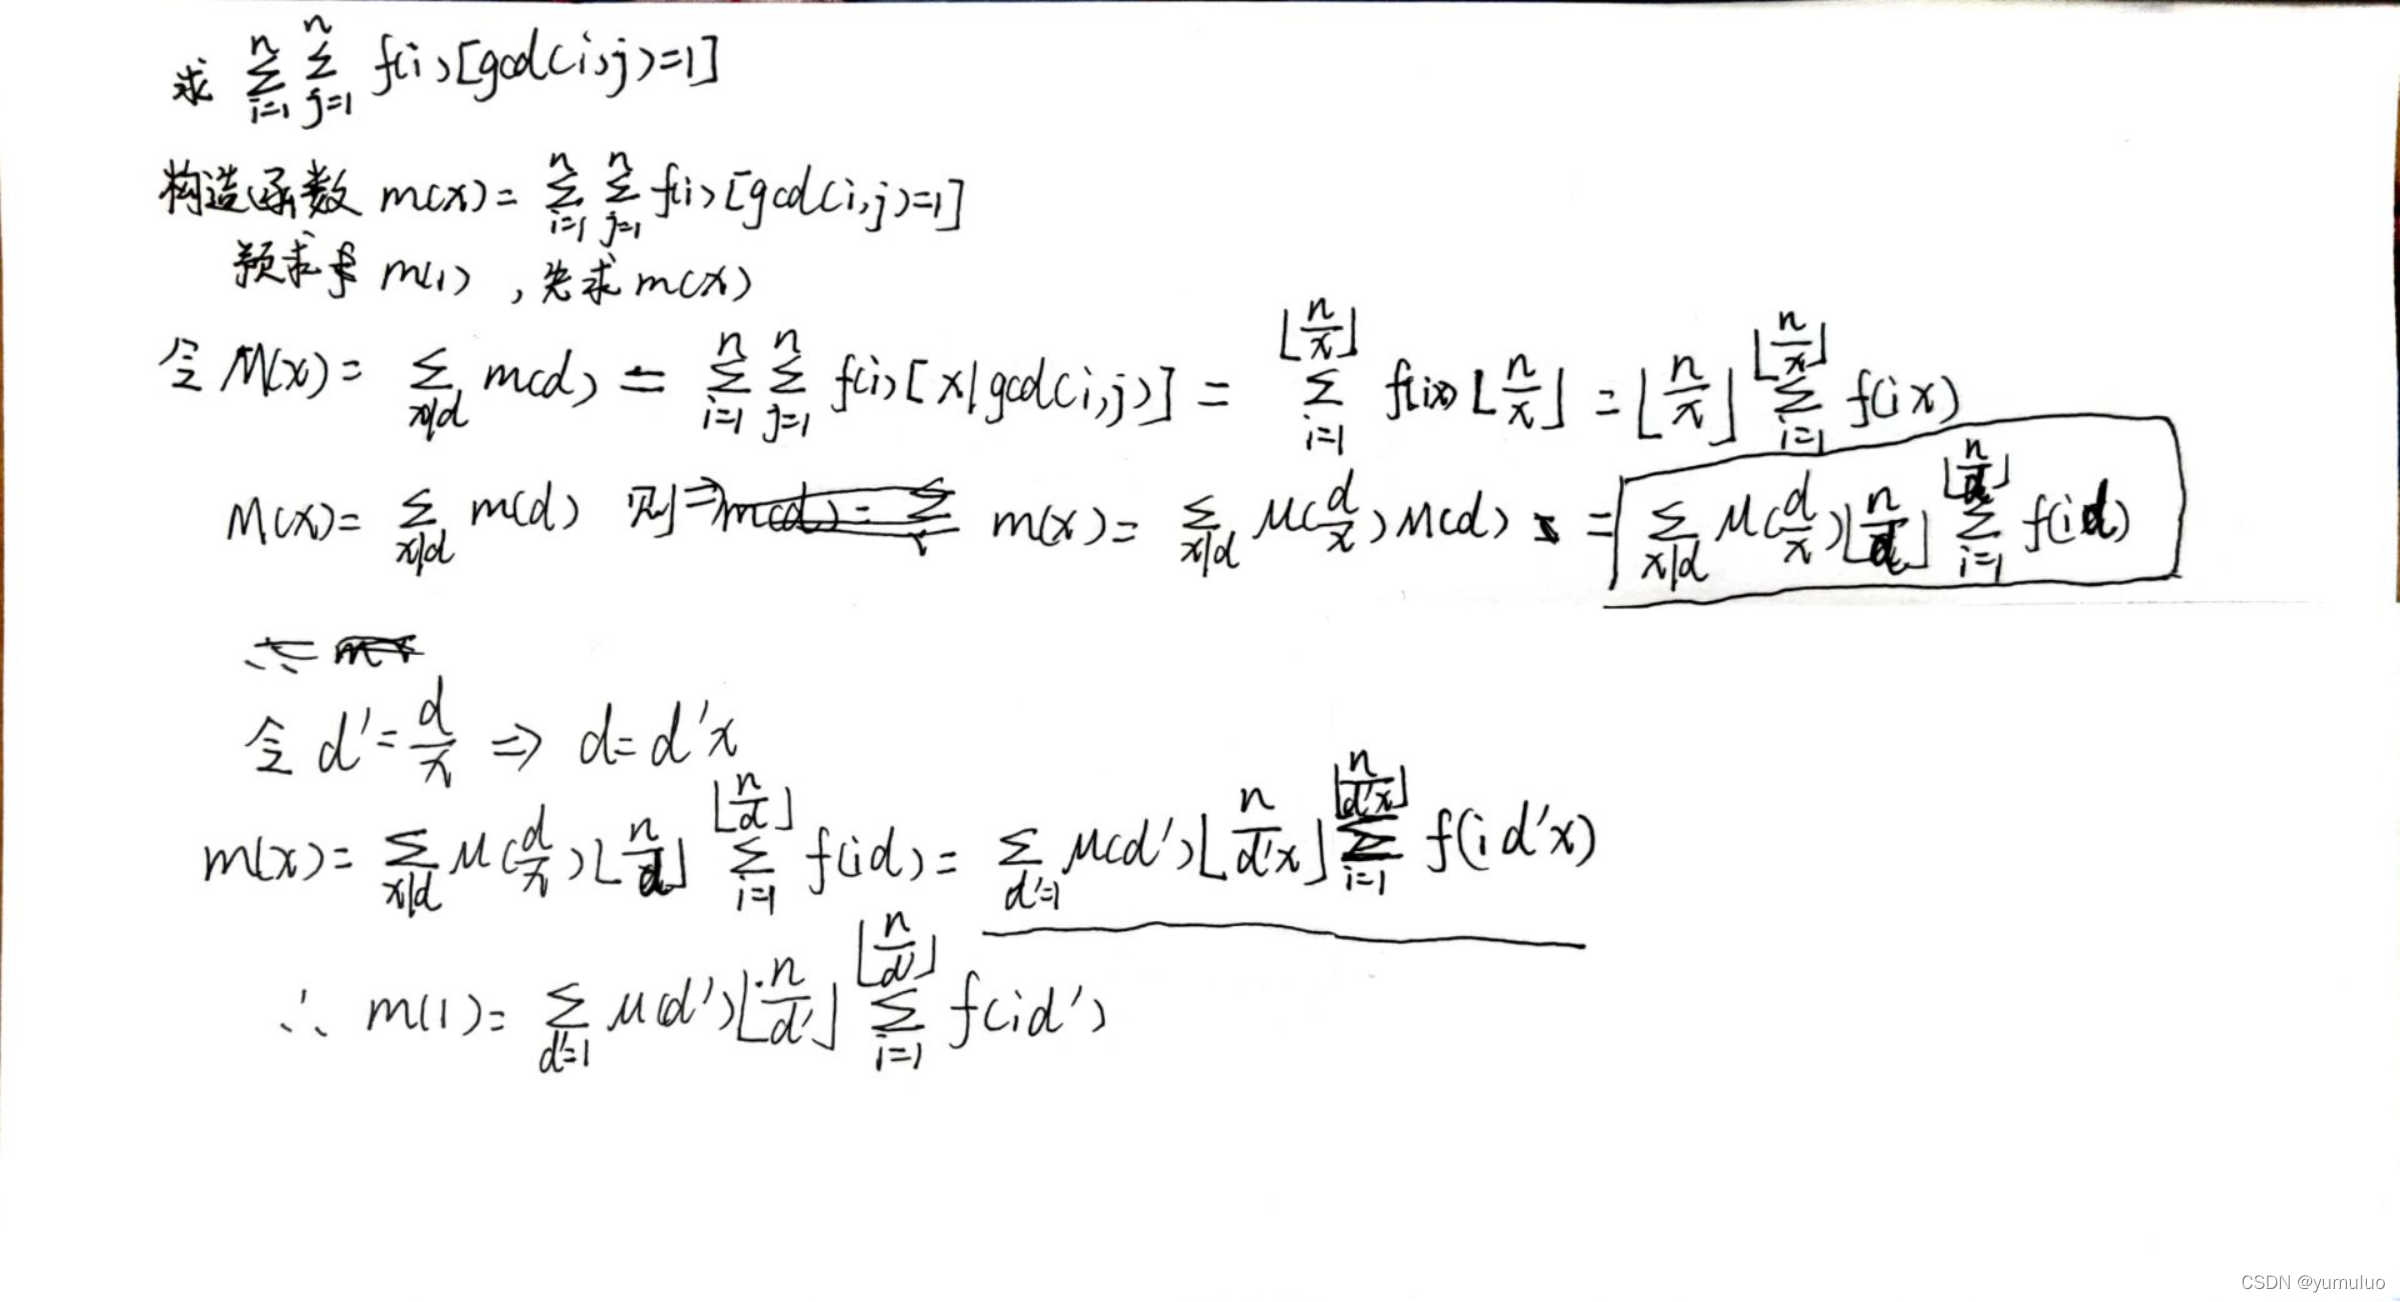 求 $\sum_{i=1}^{n}\sum_{j=1}^{n} f(i)[gcd(i,j)=1]$
构造函数 $m(x)=\sum_{i=1}^{n}\sum_{j=1}^{n} f(i)[gcd(i,j)=1]$
预求 $m(1)$ ,先求 $m(x)$
令 $M(x)=\sum_{x|d} m(d)=\sum_{i=1}^{n}\sum_{j=1}^{n} f(i)[x|gcd(i,j)]=\sum_{i=1}^{\lfloor\frac{n}{x}\rfloor} f(ix)\lfloor\frac{n}{x}\rfloor=\lfloor\frac{n}{x}\rfloor\sum_{i=1}^{\lfloor\frac{n}{x}\rfloor} f(ix)$
$M(x)=\sum_{x|d} m(d)$ 则 $\Rightarrow$ $m(x)=\sum_{x|d}\mu(\frac{d}{x})M(d)=\sum_{x|d}\mu(\frac{d}{x})\lfloor\frac{n}{d}\rfloor\sum_{i=1}^{\lfloor\frac{n}{d}\rfloor} f(id)$
令 $d'=\frac{d}{x}\Rightarrow d=d'x$
$m(x)=\sum_{x|d}\mu(\frac{d}{x})\lfloor\frac{n}{d}\rfloor\sum_{i=1}^{\lfloor\frac{n}{d}\rfloor} f(id)=\sum_{d'=1}\mu(d')\lfloor\frac{n}{d'x}\rfloor\sum_{i=1}^{\lfloor\frac{n}{d'x}\rfloor} f(id'x)$
∴ $m(1)=\sum_{d'=1}\mu(d')\lfloor\frac{n}{d'}\rfloor\sum_{i=1}^{\lfloor\frac{n}{d'}\rfloor} f(id')$
CSDN @yumuluo